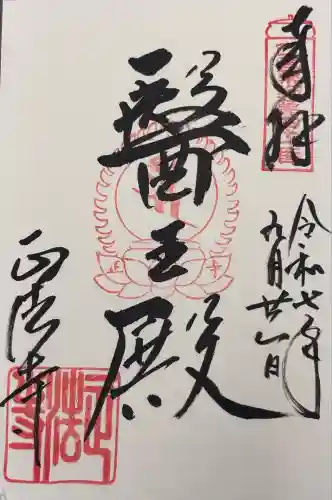 奉拝
令和七年
九月廿一日
醫王殿
正法寺